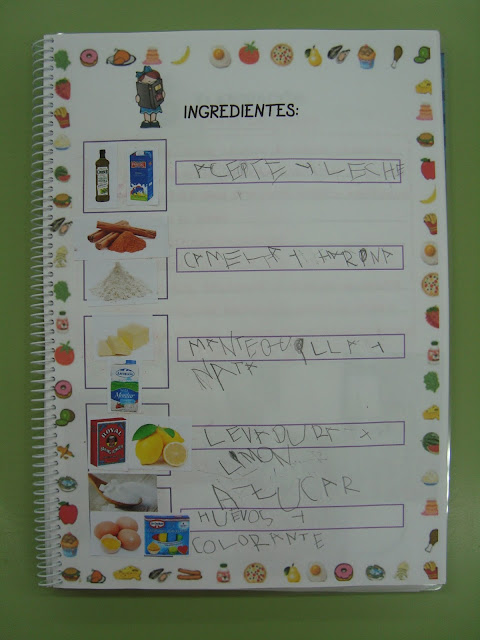 INGREDIENTES:
ACEITE Y LECHE
CAMELA Y HARINA
MANTEQUILLA Y
NATA
LEVADURA Y
LIMON
AZUCAR
HUEVOS Y
COLORANTE
ROYAL